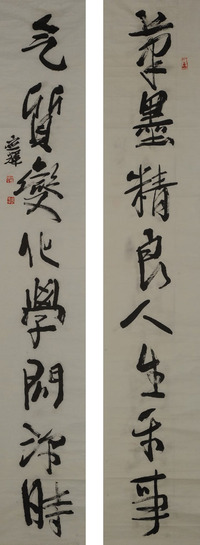 筆墨精良人生乐事
气質變化學問深時